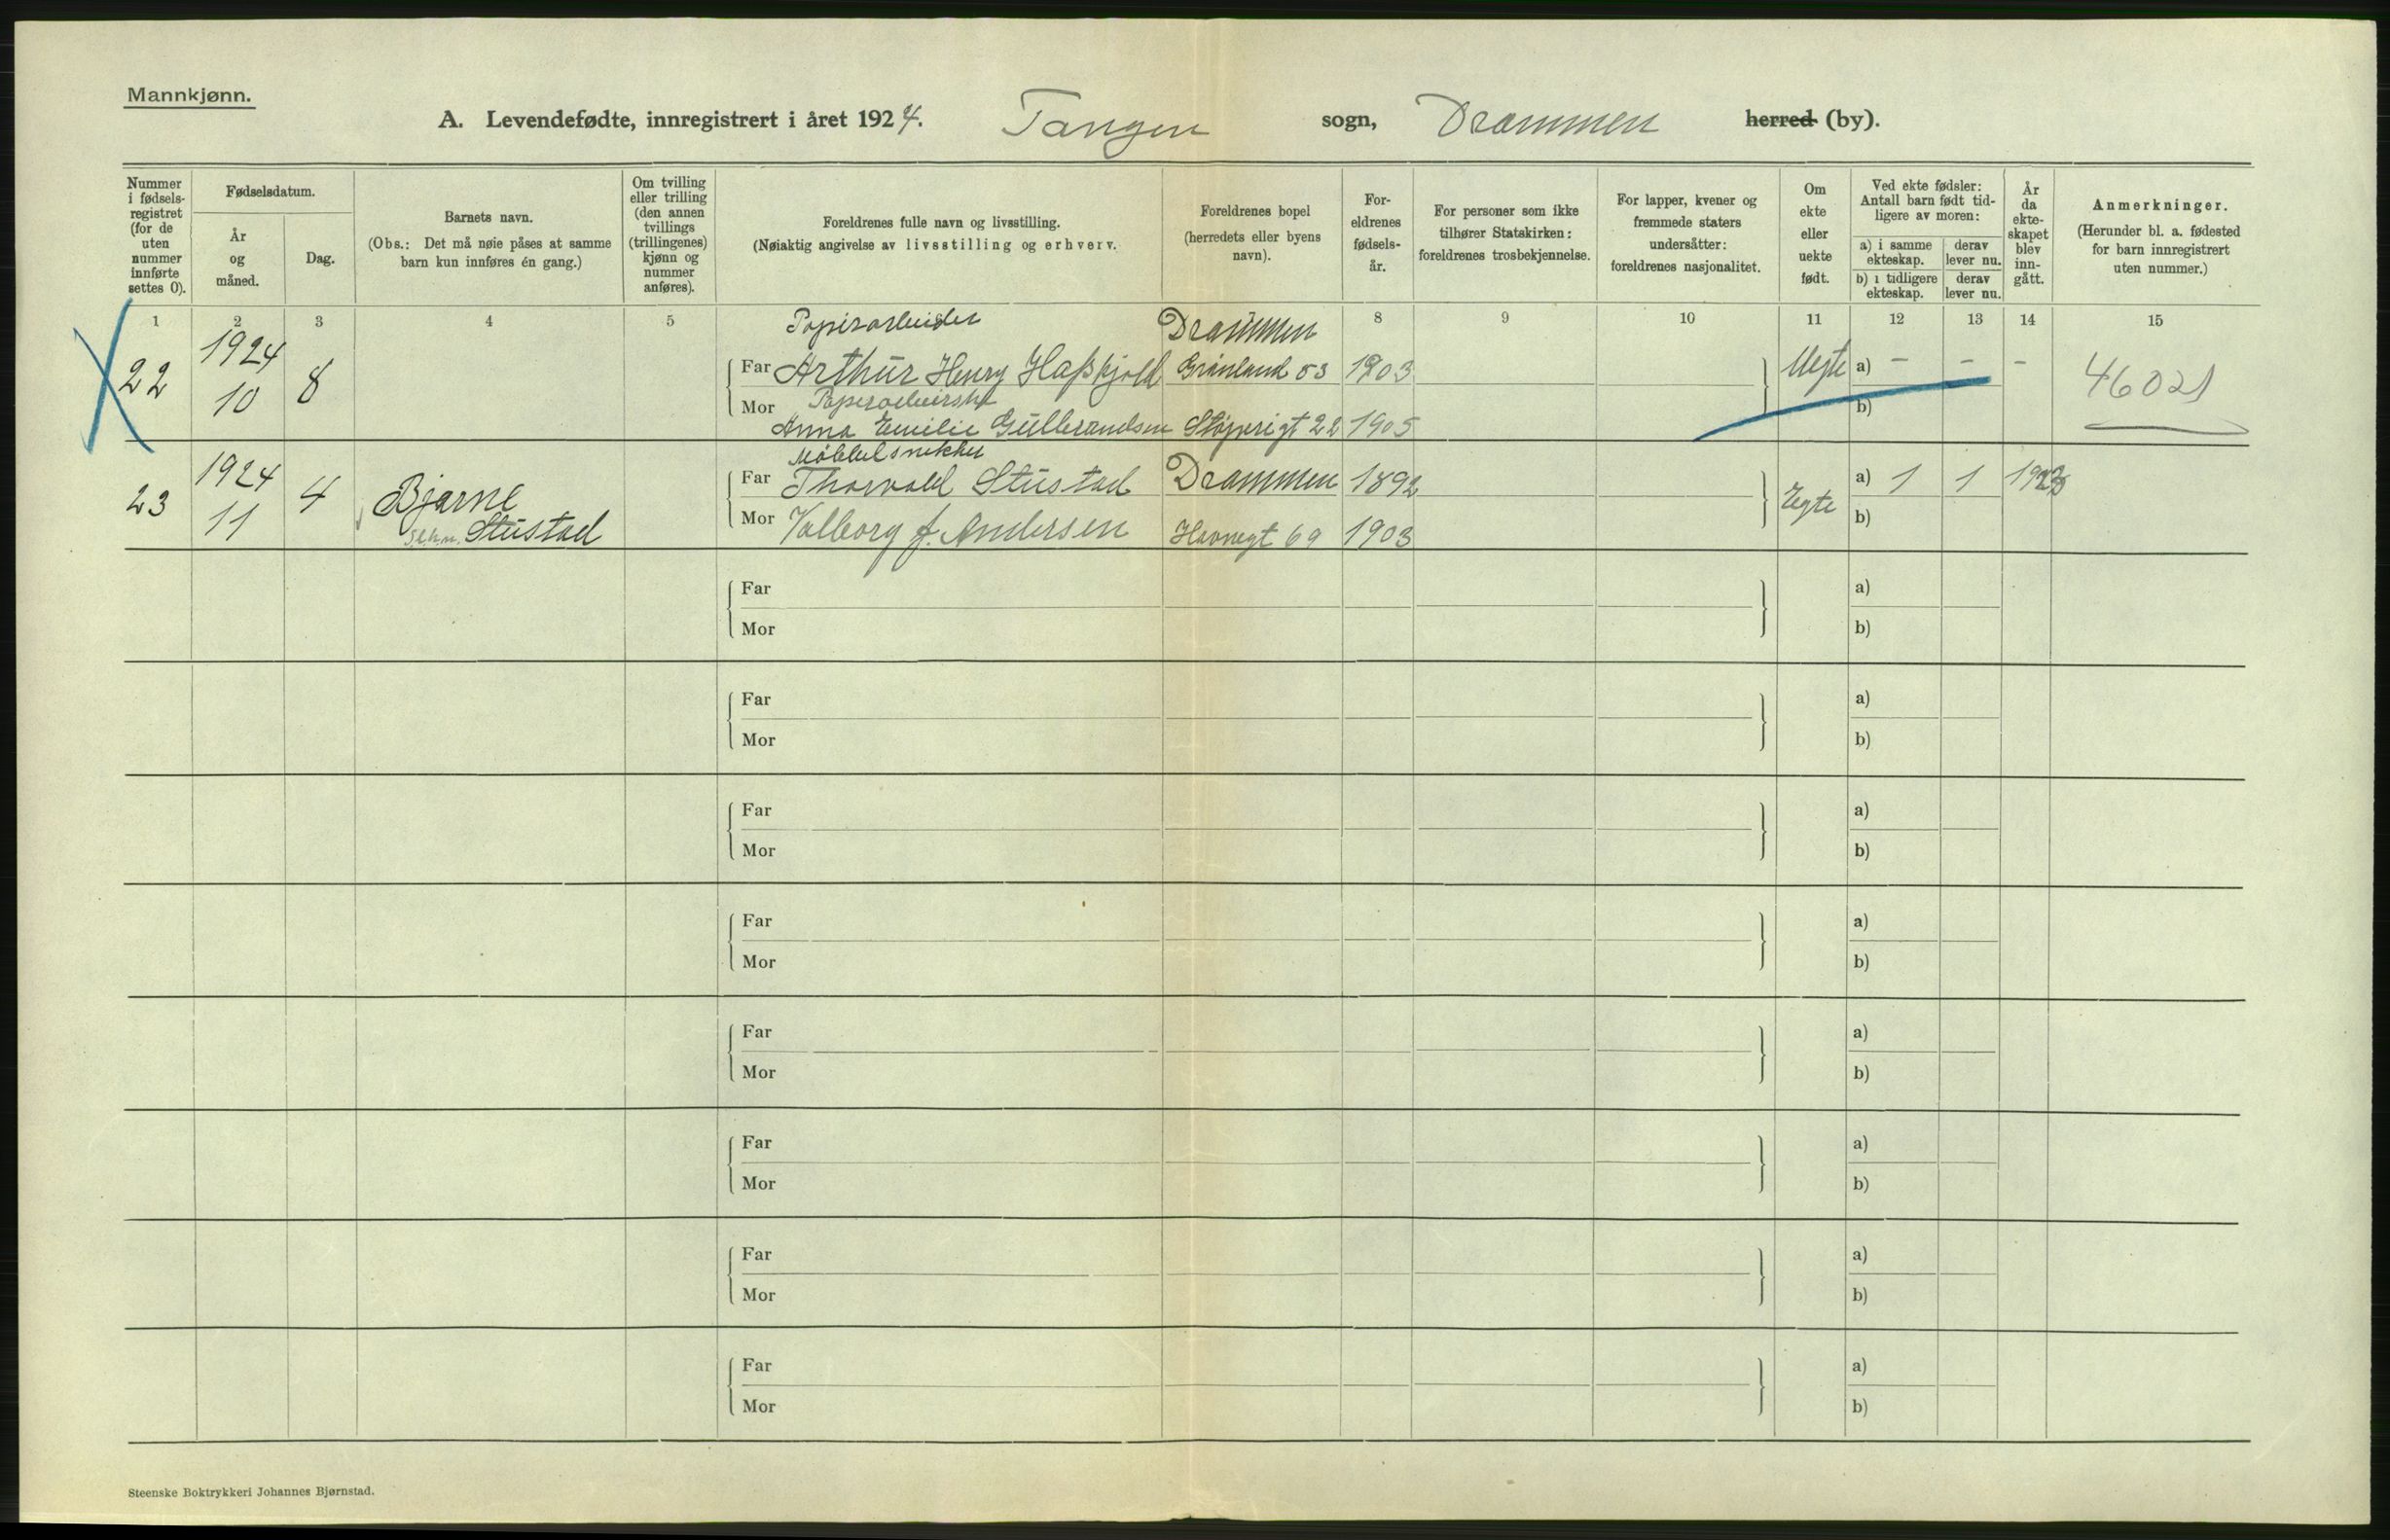 Mannkjønn.
A. Levendefødte, innregistrert i året 1924. Tangen sogn, Drammen herred (by).
Nummer i fødsels-registret (for de uten nummer innførte settes 0).
Fødselsdatum.
År og måned.
Dag.
Barnets navn.
(Obs.: Det må nøie påses at samme barn kun innføres én gang.)
Om tvilling eller trilling (den annen tvillings (trillingenes) kjønn og nummer anføres).
Foreldrenes fulle navn og livsstilling.
(Nøiaktig angivelse av livsstilling og erhverv.
Foreldrenes bopel (herredets eller byens navn).
For-eldrenes fødsels-år.
For personer som ikke tilhører Statskirken: foreldrenes trosbekjennelse.
For lapper, kvener og fremmede staters undersåtter: foreldrenes nasjonalitet.
Om ekte eller uekte født.
Ved ekte fødsler: Antall barn født tid-ligere av moren:
a) i samme ekteskap.
derav lever nu.
b) i tidligere ekteskap.
derav lever nu.
År da ekte-skapet blev inn-gått.
Anmerkninger.
(Herunder bl. a. fødested for barn innregistrert uten nummer.)
1 2 3 4 5 8 9 10 11 12 13 14 15
Papirarbeider Drammen
22 1924 10 8
Far Arthur Henry Haßkjold Grønland 53 1903 Uegte a) - - - 46021
Mor Anna Emilie Gulbrandsen 22 1905 b)
Møbbelsnekker
23 1924 11 4 Bjarne Stustad
Far Thorvald Stustad Drammen 1892 Egte a) 1 1 1923
Mor Valborg f. Andersen Havnegt 69 1903 b)
Far a)
Mor b)
Far a)
Mor b)
Far a)
Mor b)
Far a)
Mor b)
Far a)
Mor b)
Far a)
Mor b)
Far a)
Mor b)
Far a)
Mor b)
Steenske Boktrykkeri Johannes Bjørnstad.